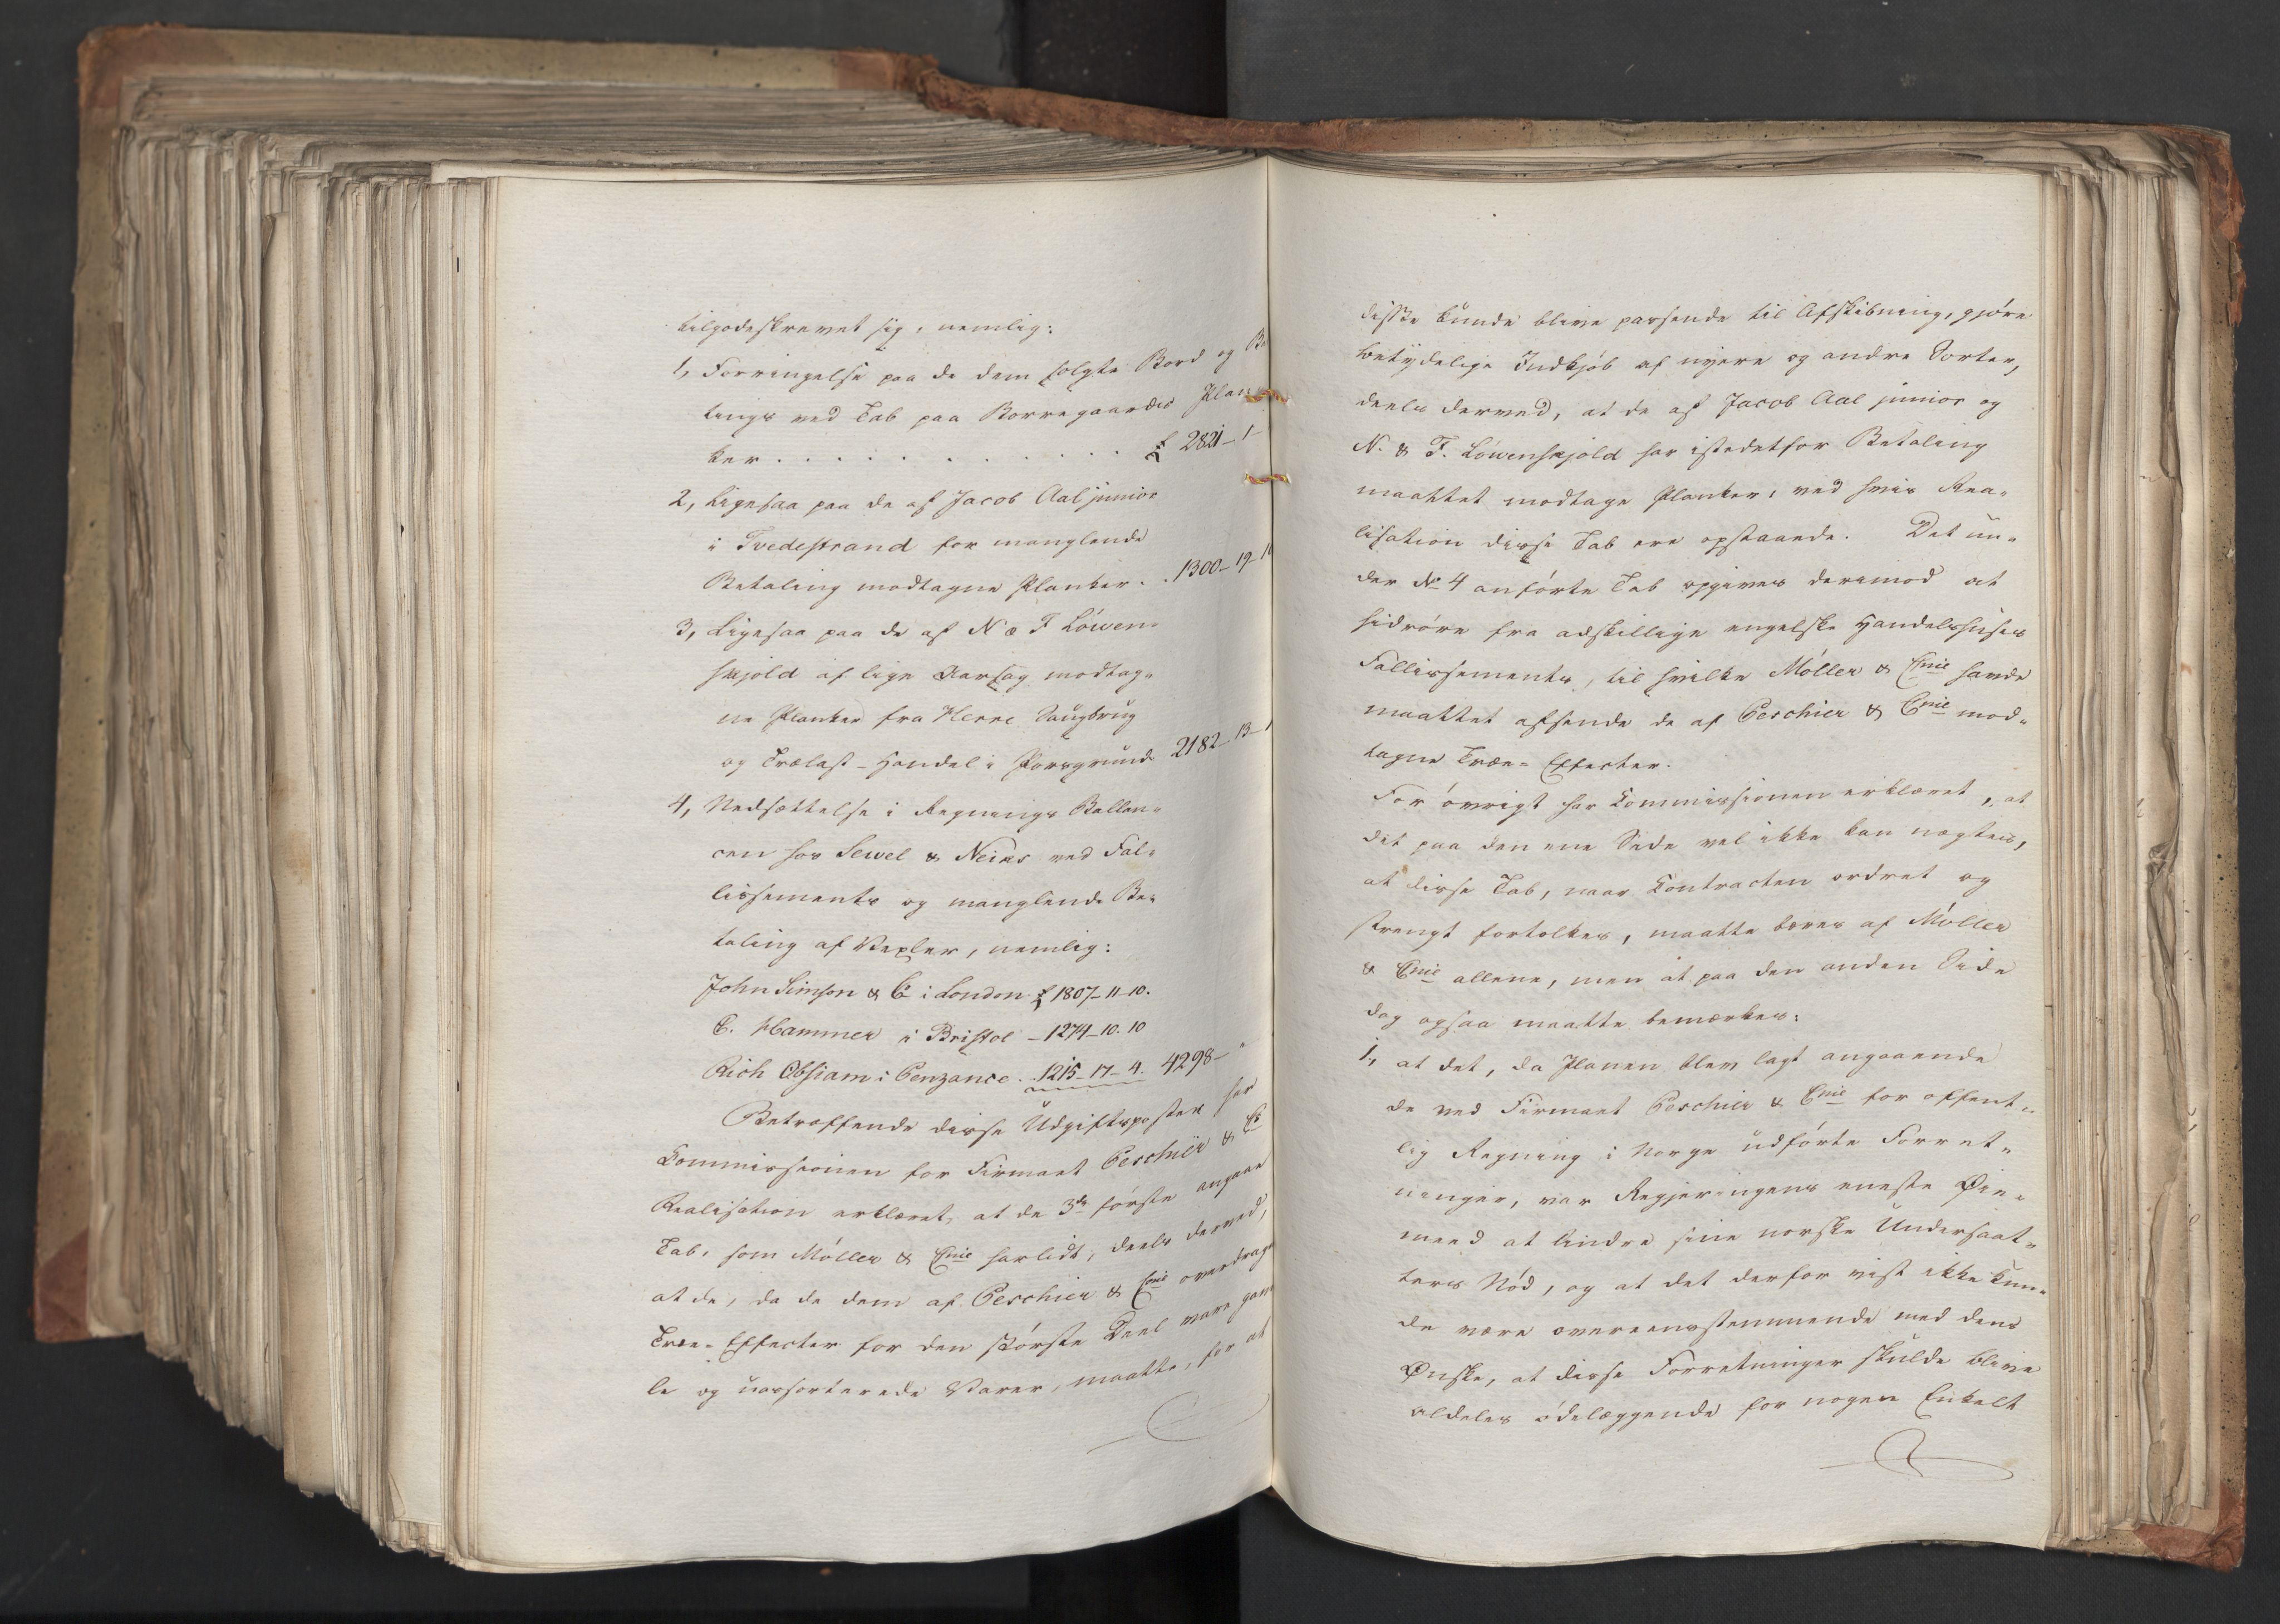 tilgodeskrevet sig, nemlig:
1, Forringelse paa de dem solgte Bord og Ba
tings ved Tab paa Borregaards Plan
ker . . . . . . . . . . . £ 2821-1-
2, Ligesaa paa de af Jacob Aal junior
i Tvedestrand for manglende
Betaling modtagne Planker . . 1300-19-1
3, Ligesaa paa de af N & F Löwen-
skjold af lige Aarsag modtag-
ne Planker fra Herre Saugbrug
og Trælast-Handel i Porsgrund 2182-13-1
4, Nedsættelse i Regnings Ballan-
cen hos Sewel & Neiks ved Fal-
lissements og manglende Be-
taling af Vexler, nemlig:
John Simson & Co i London £ 1807-11-10.
C. Hammer i Bristol - 1274-10.10
Rich Obsiam i Penzance . . 1215-17-4. 4298- "
Betræffende disse Udgiftsposter har
Commissionen for Firmaet Peschier & Co
Realisation erklæret, at de 3de første angaae
Tab, som Möller & Cmie har lidt, deels derved,
at de, da de dem af Peschier & Cmie overdrage
Træe-Effecter for den største Deel vare gam
le og uassorterede Varer, maatte, for at
disse kunde blive passende til Afskibning, gjöre
betydelige Indkjöb af nyere og andre Sorter,
deels derved, at de af Jacob Aal junior og
N. & F. Löwenskjold har istedetfor Betaling
maattet modtage Planker, ved hvis Rea-
lisation disse Tab ere opstaaede. Det un-
der No 4 anförte Tab opgives derimod at
hidröre fra adskillige engelske Handelshuses
Fallissements, til hvilke Möller & Cmie havde
maattet afsende de af Peschier & Cmie mod-
tagne Træe-Effecter.
For övrigt har Commissionen erklæret, at
det paa den ene Side vel ikke kan nægtes,
at disse Tab, naar Contracten ordret og
strengt fortolkes, maatte bæres af Möller
& Cmie allene, men at paa den anden Side
dog ogsaa maatte bemærkes:
1, at det, da Planen blev lagt angaaende
de ved Firmaet Peschier & Cmie for offent-
lig Regning i Norge udförte Forret-
ninger, var Regjeringens eneste Øie-
meed at lindre sine norske Undersaat-
ters Nöd, og at det derfor vist ikke kun-
de være overeensstemmende med dens
Ønske, at disse Forretninger skulde blive
aldeles ödelæggende for nogen Enkelt